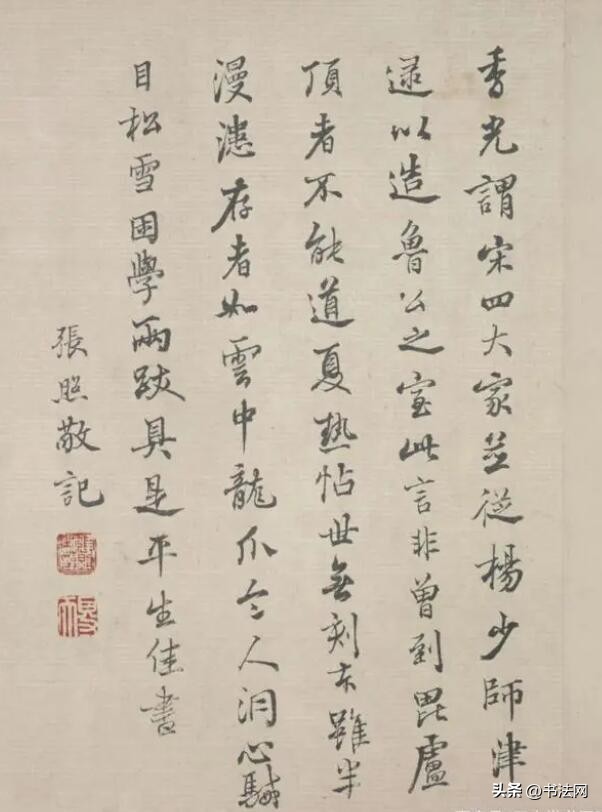 香光謂宋四大家並從楊少師津
逮以造魯公之室此言非曾到毘盧
頂者不能道夏熱帖世無刻本雖半
漫漶存者如雲中龍爪令人洞心駴
目松雪困學兩跋具是平生佳書
張照敬記
头条@书法网